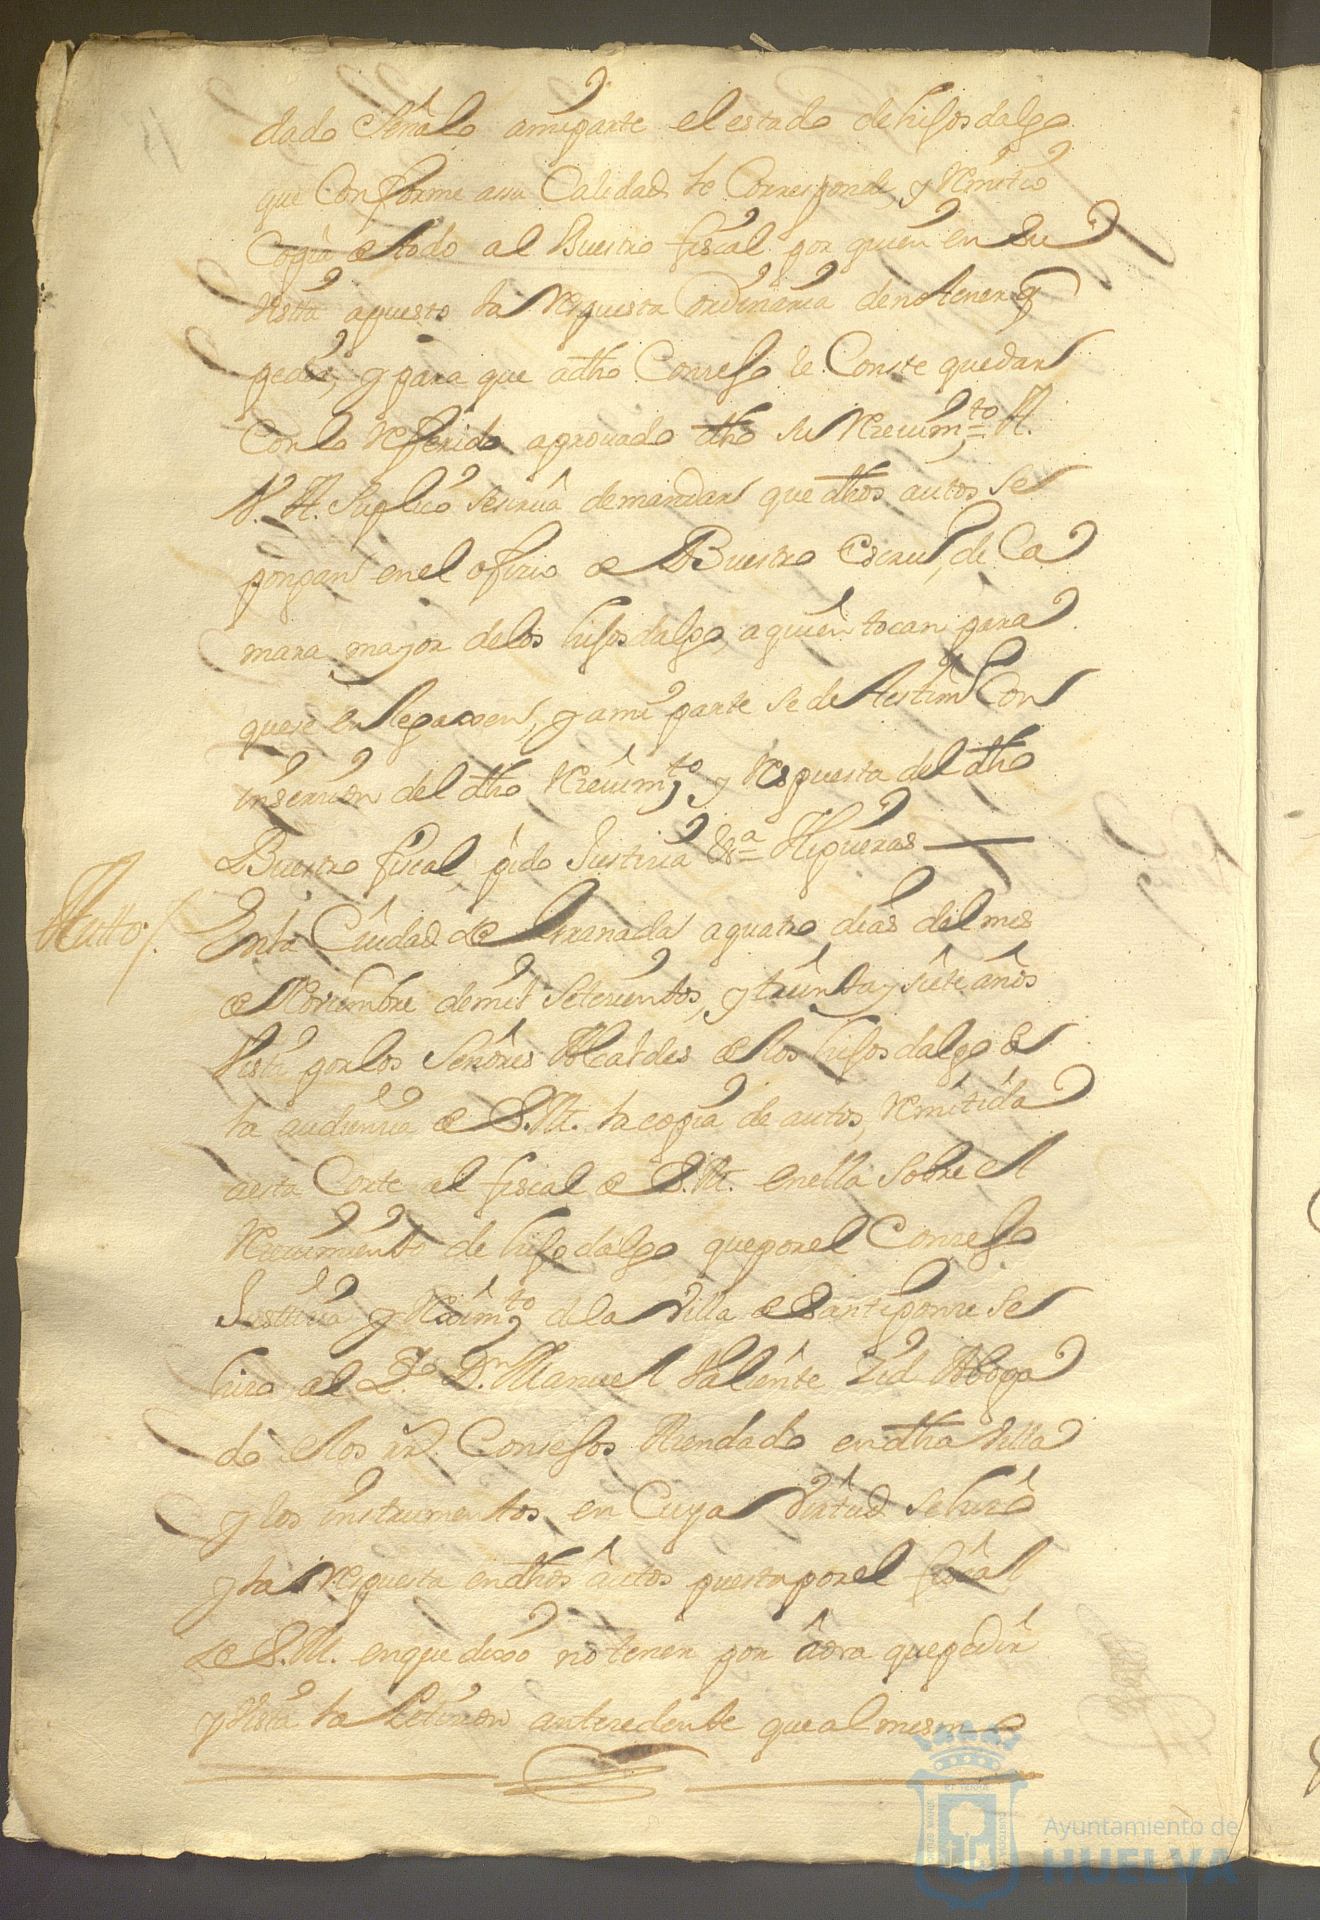 dado señalo amiparte el estado dehijosdalgo
que Conforme asu Calidad le Corresponde, y Remitio
Copia de todo al Buestro fiscal por quien en su
Vista apuesto la Respuesta Ordinaria denotener q
pedir, y para que adho Consejo le Conste quedar
Con lo Referido aprouado dho su Reciuim.to A
V. A. Suplico sesirua demandar que dhos autos se
pongan enel ofizio de Buestro Escriu.o de Ca
mara mayor delos hijosdalgo, aquien tocan para
quese en legaxoen, y ami parte se de testim.o Con
inserzion del dho Reciuim.to y Respuesta del dho
Buestro fiscal pido Justizia &.a Higueras
Autto/. Enla Ciudad de Granada aquatro dias del mes
de Nouiembre demil setezientos, y treinta y siete años
Vista porlos señores Alcaldes de los hijosdalgo de
la audienzia de S.M. la copia de autos, Remitida
aesta Corte al fiscal de S.M. enella sobre el
Reciuimiento de hijodalgo queporel Consejo
Justtizia y Reximto dela Villa de Santiponze se
hizo al L.do D.n Manuel Valiente Zid Aboga
do delos rr.s Consejos Hazendado endha Villa
y los instrumentos en Cuya Virtud sehizo
y la Respuesta endhos autos puestaporel fiscal
de S.M. enque dixo notener por aora quepedir
y Vista la Petizion antezedente queal mesmo
Ayuntamiento de
HUELVA